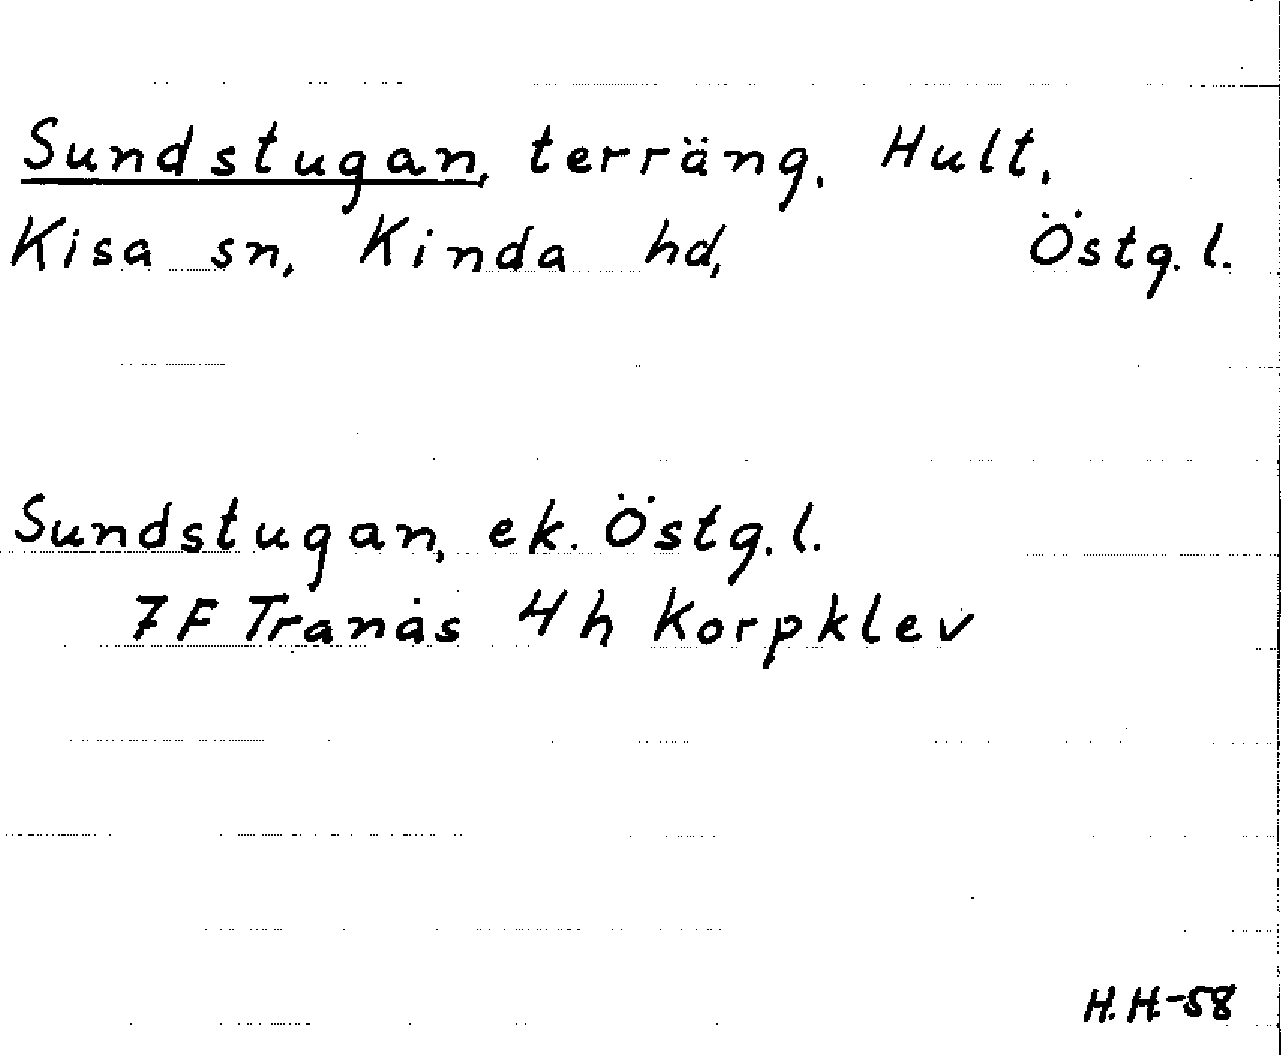 Sundstugan, terräng, Hult,
Kisa sn, Kinda hd, Östg. l.
Sundstugan, ek. Östg. l.
7F Tranås 4h Korpklev
H.H.-58